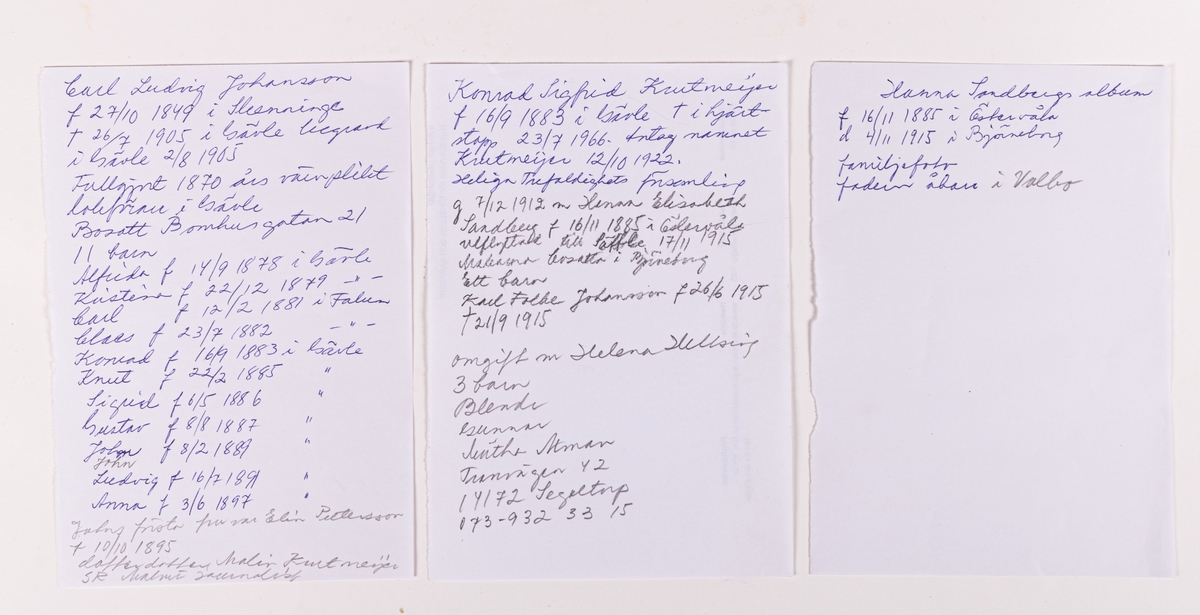 Carl Ludvig Johansson
f 27/10 1849 i Skenninge
† 26/7 1905 i Gävle begravd
i Gävle 2/8 1905
Fullgjort 1870 års värnplikt
lokeförare i Gävle
Bosatt Bomhusgatan 21
11 barn
Alfrida f 14/9 1878 i Gävle
Kristina f 22/12 1879 -"-
Carl f 12/2 1881 i Falun
Claes f 23/7 1882 -"-
Konrad f 16/9 1883 i Gävle
Knut f 22/2 1885 "
Sigrid f 6/5 1886 "
Gustav f 8/8 1887 "
John f 8/2 1889 "
John
Ludvig f 16/7 1891 "
Anna f 3/6 1897 "
Johns första fru var Elin Pettersson
† 10/10 1895
dotterdotter Malin Krutmeijer
SR Malmö Journalist
Konrad Sigfrid Krutmeijer
f 16/9 1883 i Gävle † i hjärt-
stopp 23/7 1966. Antog namnet
Krutmeijer 12/10 1922.
Heliga Trefaldighets Församling
g 7/12 1912 m Hanna Elisabeth
Sandberg f 16/11 1885 i Östervåla
utflyttade till Säffle 17/11 1915
Makarna bosatta i Björneborg
Ett barn
Karl Folke Johansson f 26/6 1915
† 21/9 1915
omgift m Helena Hellsing
3 barn
Blenda
Gunnar
Märtha Åman
Tranvägen 42
14172 Segeltorp
073-932 33 15
Hanna Sandbergs album
f 16/11 1885 i Östervåla
d 4/11 1915 i Björneborg
familjefoto
fadern åbare i Valbo